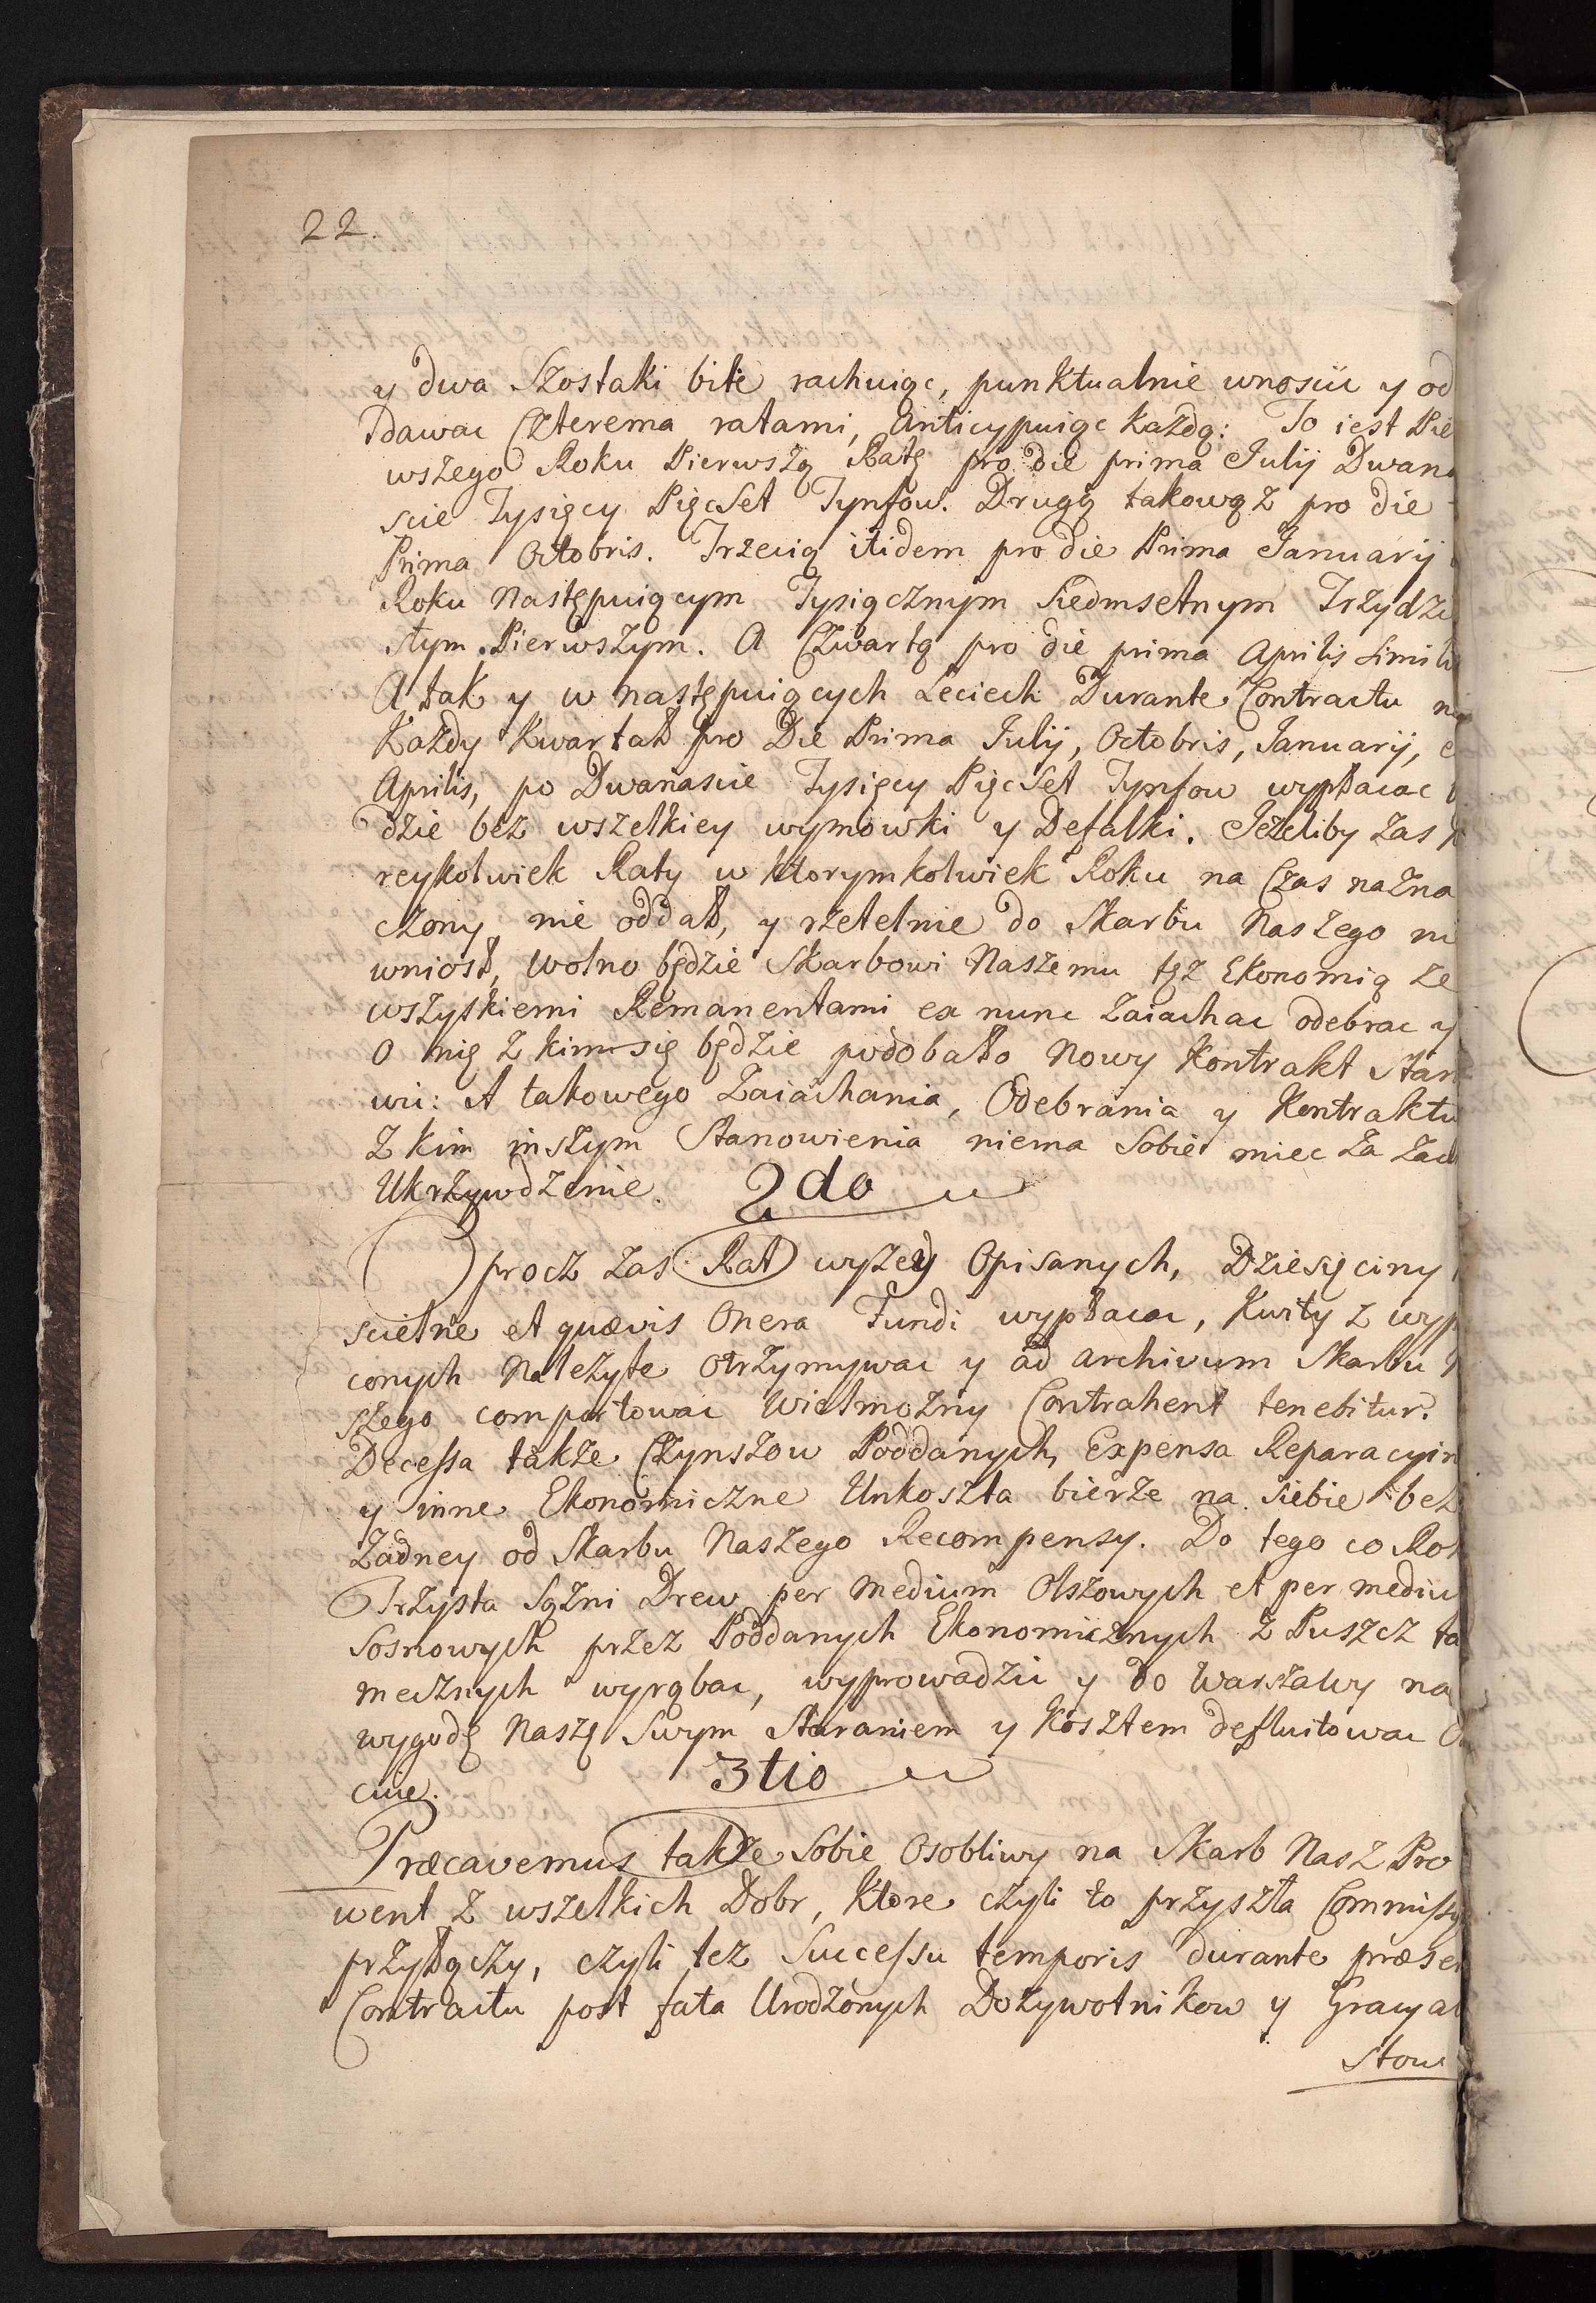 22.
y dwa Szostaki bite rachuiąc, punktualnie wnosić y od
dawac Czterema ratami, Anticypuiąc każdą: To iest Pie
wszego Roku Pierwszą Ratę pro die prima Julij Dwana
scie Tysięcy PięcSet Tynfow. Drugą takowąz pro die
Prima Octobris. Trzecią itidem pro die Prima Januarij
Roku Następuiącym Tysiącznym Siedmsetnym Trzydzie
stym Pierwszym. A Czwartą pro die prima Aprilis simili
A tak y w następuiących Leciech Durante Contractu na
Kazdy Kwartał pro Die Prima Julij, Octobris, Januarij, e
Aprilis, po Dwanascie Tysięcy PięcSet Tynfow wypłacac
dzie bez wszelkiey wymowki y Defalki. Jeżeliby zas
reykolwiek Raty w ktorymkolwiek Roku na Czas nazna
czony nie oddał, y rzetelnie do Skarbu Naszego ni
wniosł, wolno będzie Skarbowi Naszemu tęz Ekonomią ze
wszystkiemi Remanentami ex nunc zaiachac odebrac y
o nię z kim się będzie podobało Nowy Kontrakt stan
wić: A takowego Zaiachania, Odebrania y Kontraktu
z kim inszym Stanowienia niema Sobie miec za zad
Ukrzywdzenie. 2do
Oprocz zas Rat wyzey Opisanych, Dziesięciny
scielne et quævis Onera Fundi wypłacac, Kwity z wyp
conych Nalezyte otrzymywac y ad Archivum Skarbu
szego comportowac Wielmozny Contrahent tenebitur.
Decessa takze Czynszow Poddanych, Expensa Reparacyin
y inne Ekonomiczne Unkoszta bierze na siebie bez
Zadney od Skarbu Naszego Recompensy. Do tego co Rok
Trzysta Sązni Drew per medium Olszowych et per mediu
Sosnowych przez Poddanych Ekonomicznych z Puszcz ta
mecznych wyrąbac, wyprowadzic y do Warszawy na
wygodę Naszę Swym Staraniem y Kosztem defluitowac
cuie. 3tio
Præcavemus takze Sobie Osobliwy na Skarb Nasz Pro
went z wszelkich Dobr, Ktore czyli to przyszła Commissy
przyłączy, czyli tez Successu temporis durante præse
Contractu post fata Urodzonych Dozywotnikow y Gracyal
stow